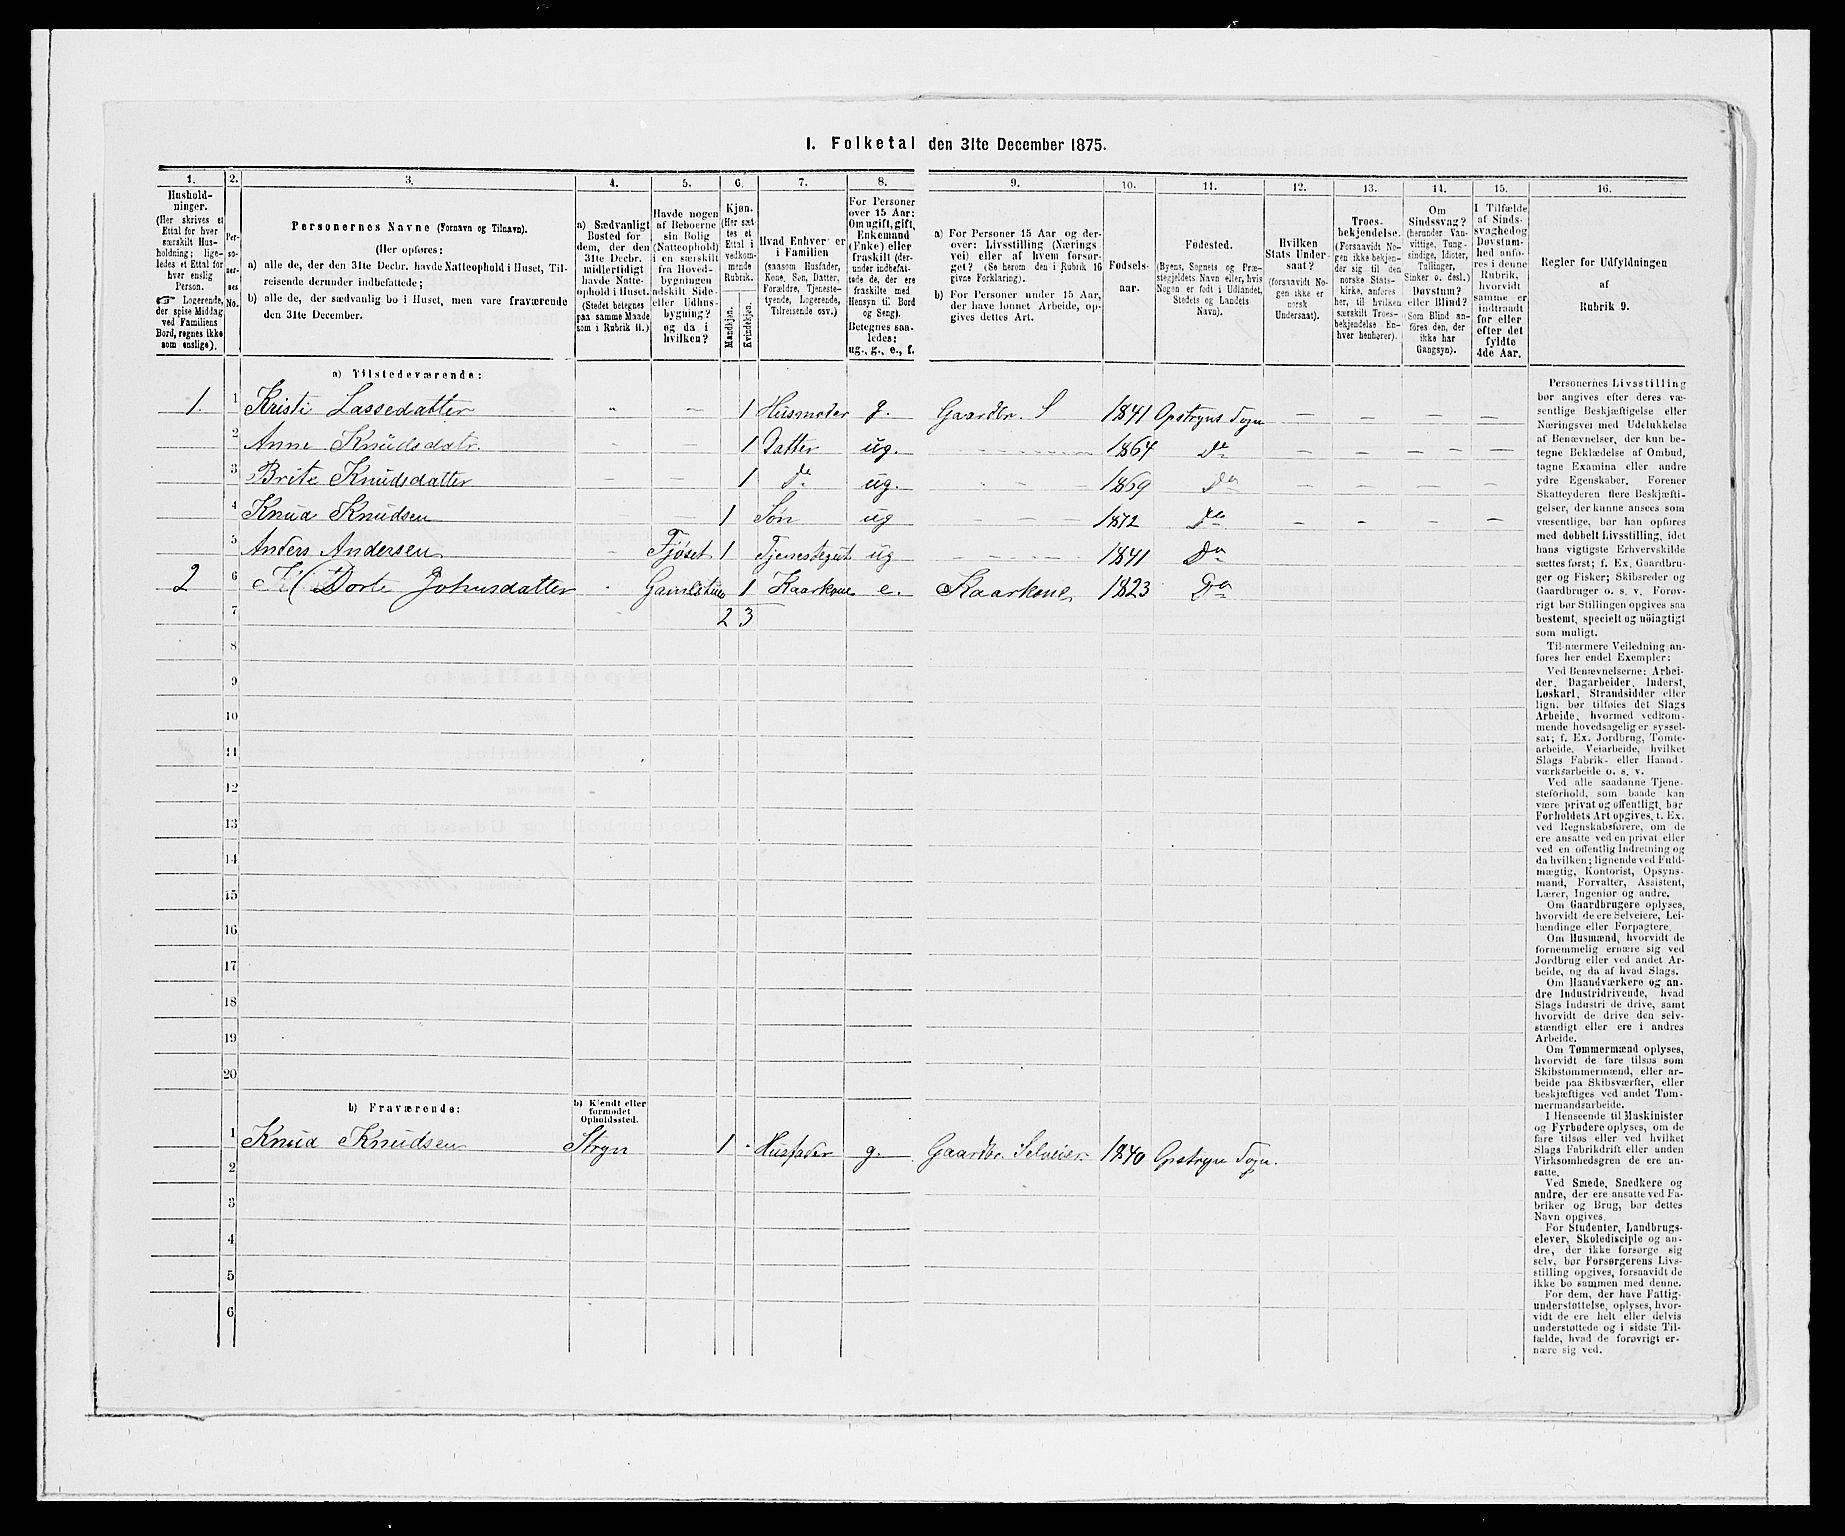 I. Folketal den 31te December 1875.
1. 2. 3. 4. 5. 6. 7. 8. 9. 10. 11. 12. 13. 14. 15. 16.
Hushold-
ninger.
(Her skrives et
Ettal for hver
særskilt Hus-
holdning; lige-
ledes et Ettal for
hver enslig
Person.
☞ Logerende,
der spise Middag
ved Familiens
Bord, regnes ikke
som enslige).
Per-
so-
ner-
nes
No.
Personernes Navne (Fornavn og Tilnavn).
(Her opføres:
a) alle de, der den 31te Decbr. havde Natteophold i Huset, Til-
reisende derunder indbefattede;
b) alle de, der sædvanlig bo i Huset, men vare fraværende
den 31te December.
a) Sædvanligt
Bosted for
dem, der den
31te Decbr.
midlertidigt
havde Natte-
ophold i Huset.
(Stedet betegnes
paa samme Maade
som i Rubrik 11.)
Havde nogen
af Beboerne
sin Bolig
(Natteophold)
i en særskilt
fra Hoved-
bygningen
adskilt Side-
eller Udhus-
bygning?
og da i
hvilken?
Kjøn.
(Her sæt-
tes et
Ettal i
vedkom-
mende
Rubrik.
Mandkjøn.
Kvindekjøn.
Hvad Enhver er
i Familien
(saasom Husfader,
Kone, Søn, Datter,
Forældre, Tjeneste-
tyende, Logerende,
Tilreisende osv.)
For Personer
over 15 Aar:
Om ugift, gift,
Enkemand
(Enke) eller
fraskilt (der-
under indbefat-
tede de, der ere
fraskilte med
Hensyn til Bord
og Seng).
Betegnes saa-
ledes:
ug., g., e., f.
a) For Personer 15 Aar og der-
over: Livsstilling (Nærings-
vei) eller af hvem forsør-
get? (Se herom den i Rubrik 16
givne Forklaring).
b) For Personer under 15 Aar,
der have lønnet Arbeide, op-
gives dettes Art.
Fødsels-
aar.
Fødested.
(Byens, Sognets og Præ-
stegjeldets Navn eller, hvis
Nogen er født i Udlandet,
Stedets og Landets
Navn).
Hvilken
Stats Under-
saat?
(forsaavidt No-
gen ikke er
norsk
Undersaat).
Troes-
bekjendelse.
(Forsaavidt No-
gen ikke bekjen-
der sig til den
norske Stats-
kirke, anføres
her, til hvilken
særskilt Troes-
bekjendelse En-
hver henhører).
Om
Sindssvag?
(herunder Van-
vittige, Tung-
sindige, Idioter,
Tullinger,
Sinker o. desl.)
Døvstum?
eller Blind?
(Som Blind an-
føres den, der
ikke har
Gangsyn).
I Tilfælde
af Sinds-
svaghed og
Døvstum-
hed anfø-
res i denne
Rubrik,
hvorvidt
samme er
indtraadt
før eller
efter det
fyldte
4de Aar.
Regler for Udfyldningen
af
Rubrik 9.
a) Tilstedeværende:
1. 1 Kristi Lassedatter " – 1 Husmoder g. Gaardbr. S 1841 Opstryns Sogn – – – –
2 Anne Knudsdatr. – – 1 Datter ug. 1864 Do – – – –
3 Brite Knudsdatter – – 1 do ug. 1869 Do – – – –
4 Knud Knudsen – 1 Søn ug 1872 Do – – – –
5 Anders Andersen – Fjøset 1 Tjenestegut ug 1841 Do
2 6 Dorte Johnsdatter 1 Kaarkone e. Kaarkone 1823 Do
7 2 3
8
9
10
11
12
13
14
15
16
17
18
19
20
b) Fraværende:
b) Kjendt eller
formodet
Opholdssted.
1 Knud Knudsen Stryn 1 - Husfader g. Gaardbr. Selveier 1840 Opstryn Sogn.
2
3
4
5
6
Personernes Livsstilling
bør angives efter deres væ-
sentlige Beskjæftigelse eller
Næringsvei med Udelukkelse
af Benævnelser, der kun be-
tegne Beklædelse af Ombud,
tagne Examina eller andre
ydre Egenskaber. Forener
Skatteyderen flere Beskjæfti-
gelser, der kunne ansees som
væsentlige, bør han opføres
med dobbelt Livsstilling, idet
hans vigtigste Erhvervskilde
sættes først; f. Ex. Gaardbru-
ger og Fisker; Skibsreder og
Gaardbruger o. s. v. Forøv-
rigt bør Stillingen opgives saa
bestemt, specielt og nöiagtigt
som muligt.
Til nærmere Veiledning an-
føres her endel Exempler:
Ved Benævnelserne: Arbei-
der, Dagarbeider, Inderst,
Løskarl, Strandsidder eller
lign. bør tilføies det Slags
Arbeide, hvormed vedkom-
mende hovedsagelig er syssel-
sat; f. Ex. Jordbrug, Tomte-
arbeide, Veiarbeide, hvilket
Slags Fabrik- eller Haand-
værksarbeide o. s. v.
Ved alle saadanne Tjene-
steforhold, som baade kan
være privat og offentligt, bør
Forholdets Art opgives, t. Ex.
ved Regnskabsførere, om de
ere ansatte ved en privat eller
ved en offentlig Indretning og
da hvilken; lignende ved Fuld-
mægtig, Kontorist, Opsyns-
mand, Forvalter, Assistent,
Lærer, Ingeniør og andre.
Om Gaardbrugere oplyses,
hvorvidt de ere Selveiere, Lei-
lændinge eller Forpagtere.
Om Husmænd, hvorvidt de
fornemmelig ernære sig ved
Jordbrug eller ved andet Ar-
beide, og da af hvad Slags.
Om Haandværkere og an-
dre Industridrivende, hvad
Slags Industri de drive, samt
hvorvidt de drive den selv-
stændigt eller ere i andres
Arbeide.
Om Tømmermænd oplyses,
hvorvidt de fare tilsøs som
Skibstømmermænd, eller ar-
beide paa Skibsværfter, eller
beskjæftiges ved andet Tøm-
mermandsarbeide.
I Henseende til Maskinister
og Fyrbødere oplyses, om de
fare tilsøs eller ved hvilket
Slags Fabrikdrift eller anden
Virksomhedsgren de ere an-
satte.
Ved Smede, Snedkere og
andre, der ere ansatte ved Fa-
briker og Brug, bør dettes
Navn opgives.
For Studenter, Landbrugs-
elever, Skoledisciple og an-
dre, der ikke forsørge sig
selv, bør Forsørgerens Livs-
stilling opgives, forsaavidt de
ikke bo sammen med denne.
For dem, der have Fattig-
understøttelse, oplyses, hvor-
vidt de ere helt eller delvis
understøttede og i sidste Til-
fælde, hvad de forøvrigt er-
nære sig ved.